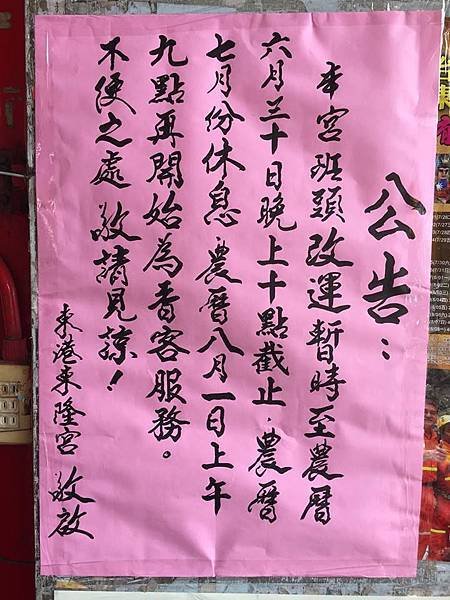 公告：
本宮班頭改運暫時至農曆
六月三十日晚上十點截止．農曆
七月份休息 農曆八月一日上午
九點再開始為香客服務。
不便之處 敬請見諒！
東港東隆宮 敬啟